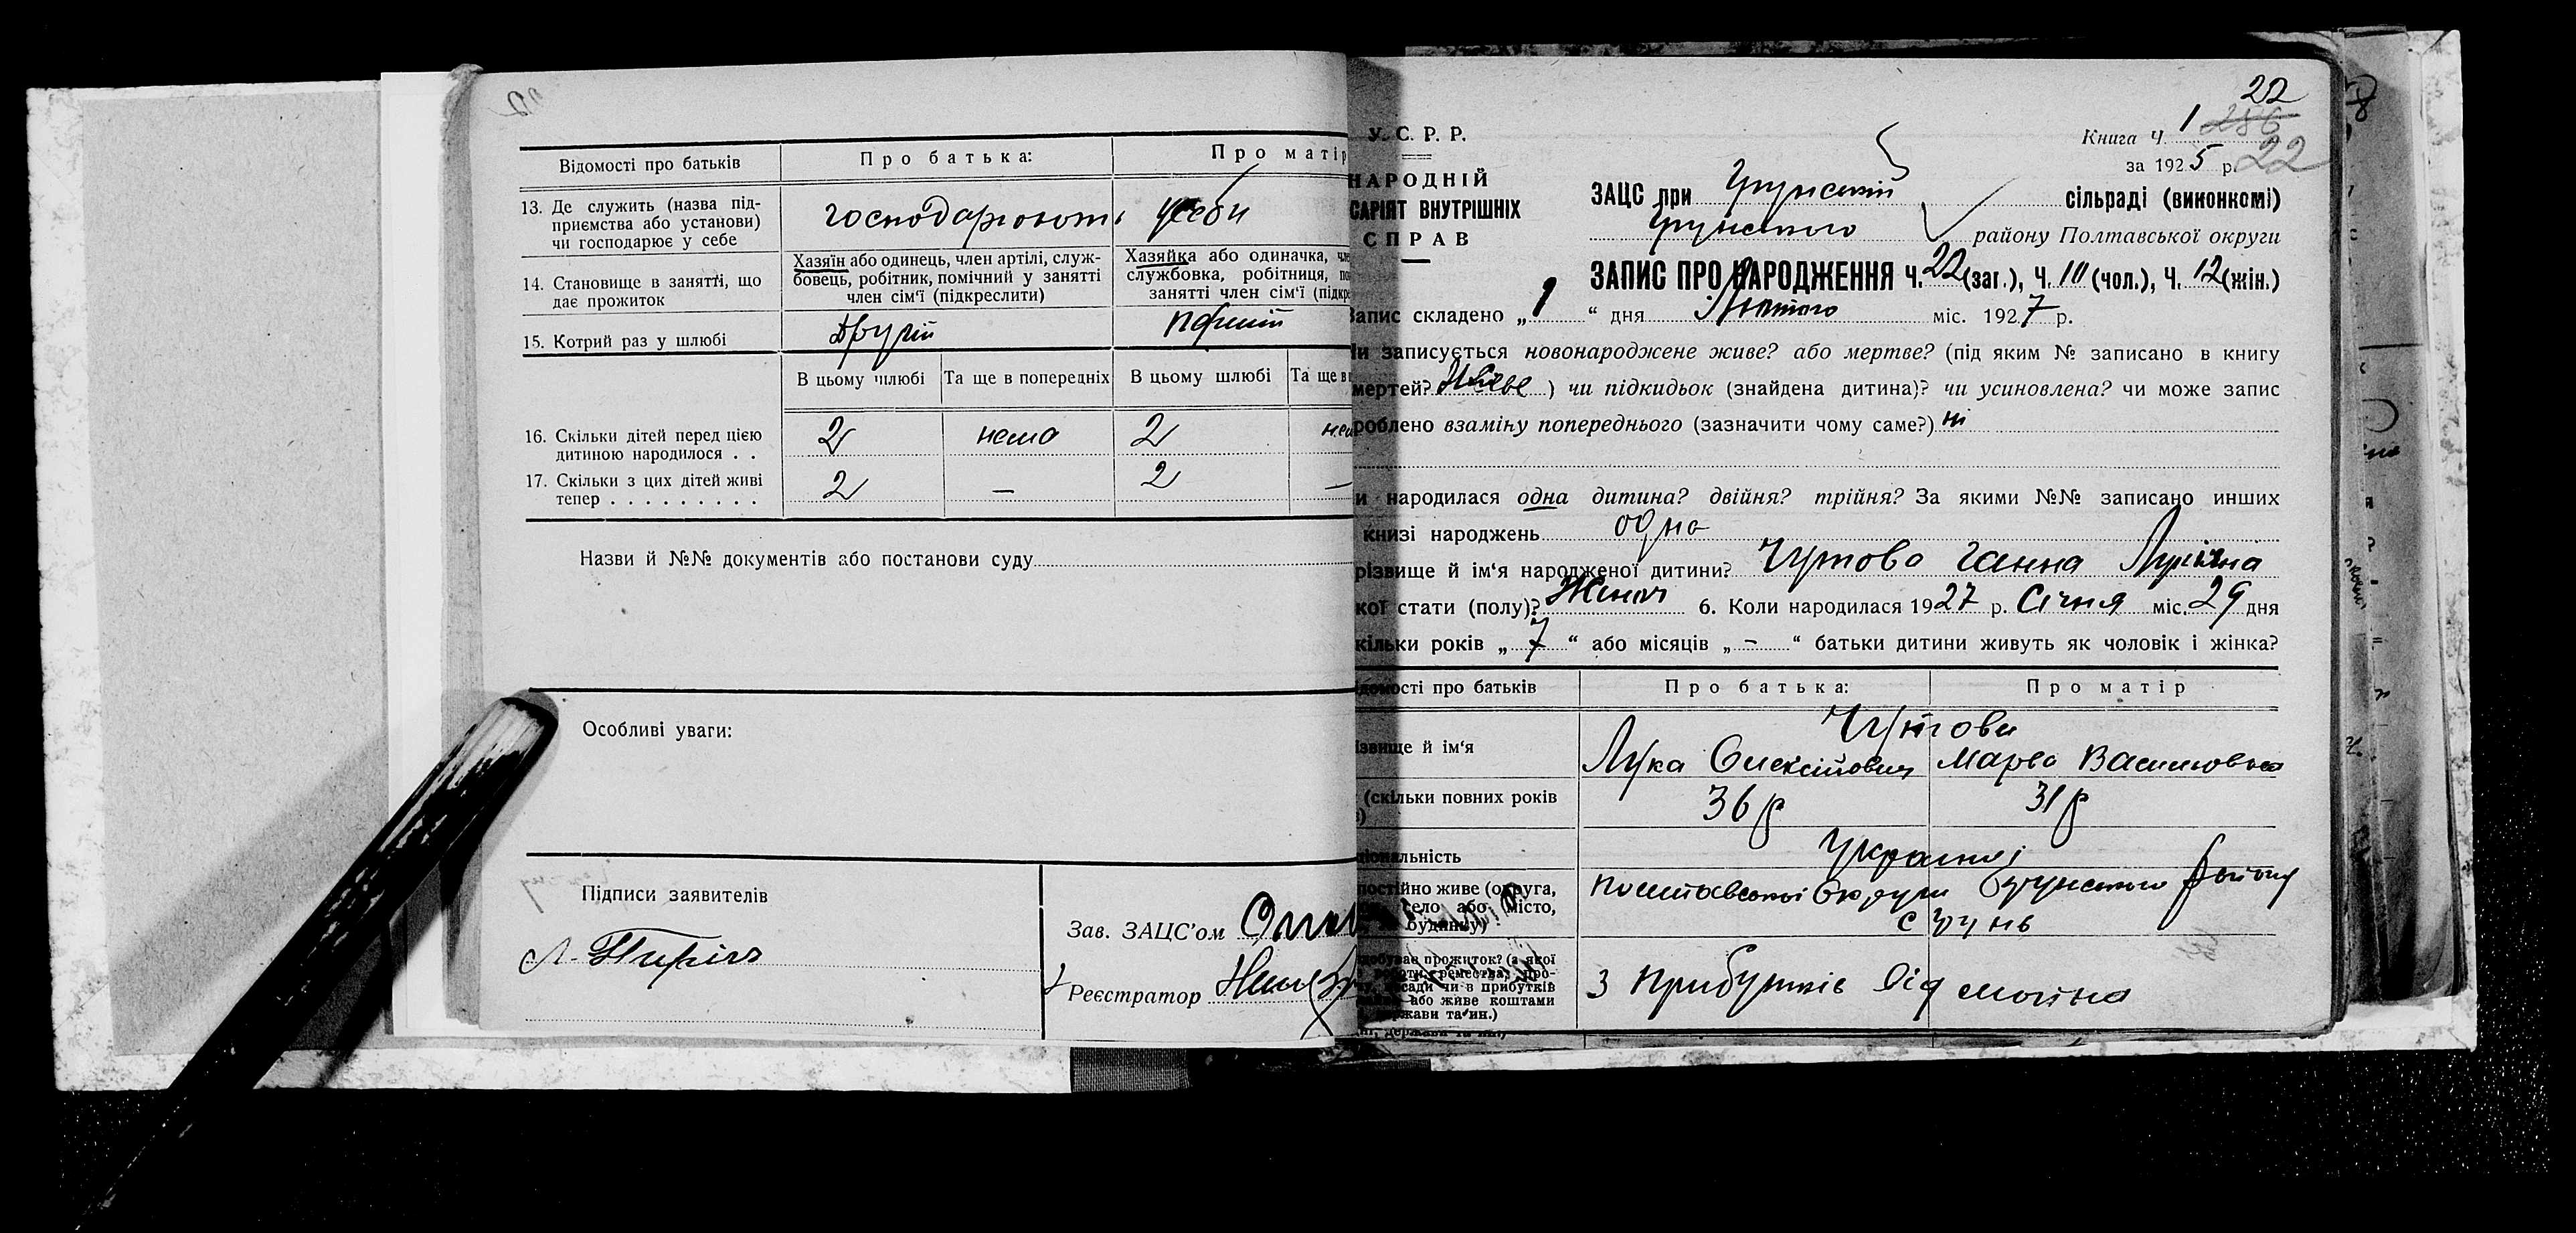 Відомості про батьків
Про батька:
Про матір
13. Де служить (назва під-
приємства або установи)
чи господарює у себе
господарюють усеби
14. Становище в занятті, що
дає прожиток
Хазяїн або одинець, член артілі, служ-
бовець, робітник, помічний у занятті
член сім'ї (підкреслити)
Хазяйка або одиначка,
службовка, робітниця,
занятті член сім'ї
15. Котрий раз у шлюбі
другий
первий
В цьому шлюбі
Та ще в попередніх
В цьому шлюбі
Та ще в
16. Скільки дітей перед цією
дитиною народилося . .
2
нема
2
17. Скільки з цих дітей живі
тепер . . . . . . . . .
2
—
2
—
Назви й №№ документів або постанови суду
Особливі уваги:
Підписи заявителів
Зав. ЗАЦС'ом
Реєстратор
22
Книга Ч. 1 286
за 1925 р. 22
У. С. Р. Р.
НАРОДНІЙ
САРІЯТ ВНУТРІШНІХ
СПРАВ
ЗАЦС при Грунській сільраді (виконкомі)
Грунського району Полтавської округи
ЗАПИС ПРО НАРОДЖЕННЯ Ч. 22 (заг.), Ч. 10 (чол.), Ч. 12 (жін.)
Запис складено „ 1 “ дня Лютого міс. 1927 р.
Чи записується новонароджене живе? або мертве? (під яким № записано в книгу
мертей? Живе ) чи підкидьок (знайдена дитина)? чи усиновлена? чи може запис
роблено взаміну попереднього (зазначити чому саме?) ні
и народилася одна дитина? двійня? трійня? За якими №№ записано инших
книзі народжень одна
різвище й ім'я народженої дитини? Чутова Ганна Лукічна
кої стати (полу)? Жіноч 6. Коли народилася 1927 р. Січня міс. 29 дня
кільки років „ 7 “ або місяців „ – “ батьки дитини живуть як чоловік і жінка?
домості про батьків
Про батька:
Про матір
ізвище й ім'я
Чутови
Лука Олексійович
Марва Василовна
(скільки повних років
36 р
31 р
ціональність
Українці
постійно живе (округа,
село або місто,
будинку)
Полтавської Округи Грунського району
с Грунь
добуває прожиток? (з якої
роботи, ремества, про-
сади чи в прибутків
або живе коштами
ржави та ин.)
З прибутків від майна